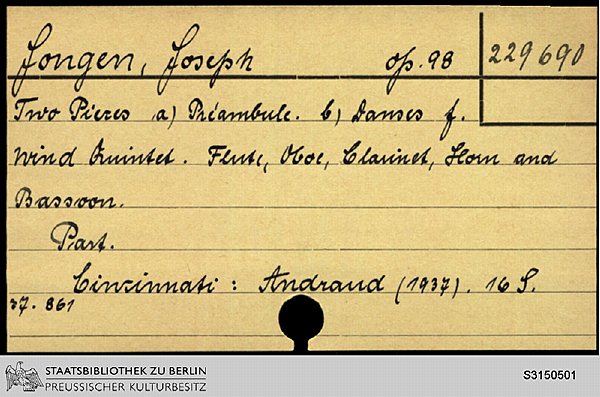 Jongen, Joseph op. 98 229690
Two Pieces a) Préambule. b) Danses f.
Wind Quintet. Flute, Oboe, Clarinet, Horn and
Bassoon.
Part.
Cincinnati : Andraud (1937). 16 S.
37. 861
STAATSBIBLIOTHEK ZU BERLIN
PREUSSISCHER KULTURBESITZ
S3150501